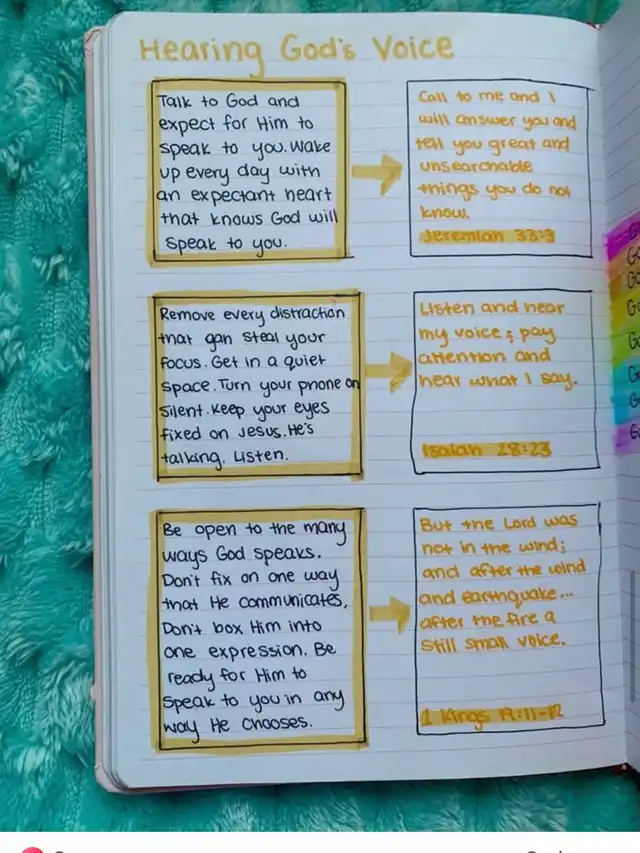 Hearing God's Voice
Talk to God and
expect for Him to
speak to you. Wake
up every day with
an expectant heart
that knows God will
speak to you.
Call to me and I
will answer you and
tell you great and
unsearchable
things you do not
know.
Jeremiah 33:3
Remove every distraction
that gan steal your
focus. Get in a quiet
space. Turn your phone on
silent. Keep your eyes
fixed on Jesus. He's
talking. Listen.
Listen and hear
my voice; pay
attention and
hear what I say.
Isaiah 28:23
Be open to the many
ways God speaks.
Don't fix on one way
that He communicates.
Don't box Him into
one expression. Be
ready for Him to
speak to you in any
way He chooses.
But the Lord was
not in the wind;
and after the wind
and earthquake...
after the fire a
still small voice.
1 Kings 19:11-12